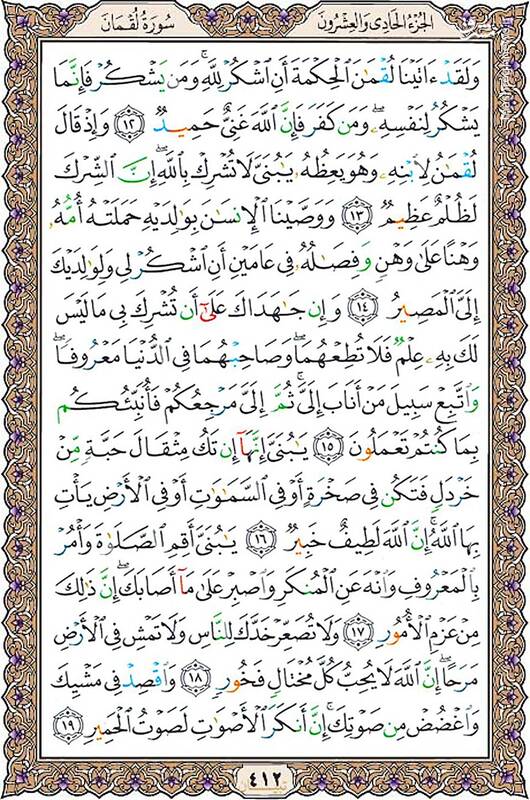 الجزء الحادی والعشرون
سورة لقمان
وَلَقَدْ ءَاتَيْنَا لُقْمَٰنَ الْحِكْمَةَ أَنِ اشْكُرْ لِلَّهِ ۚ وَمَن يَشْكُرْ فَإِنَّمَا
يَشْكُرُ لِنَفْسِهِ ۖ وَمَن كَفَرَ فَإِنَّ اللَّهَ غَنِىٌّ حَمِيدٌ ١٢ وَإِذْ قَالَ
لُقْمَٰنُ لِابْنِهِ وَهُوَ يَعِظُهُ يَٰبُنَىَّ لَا تُشْرِكْ بِاللَّهِ ۖ إِنَّ الشِّرْكَ
لَظُلْمٌ عَظِيمٌ ١٣ وَوَصَّيْنَا الْإِنسَٰنَ بِوَٰلِدَيْهِ حَمَلَتْهُ أُمُّهُ
وَهْنًا عَلَىٰ وَهْنٍ وَفِصَٰلُهُ فِى عَامَيْنِ أَنِ اشْكُرْ لِى وَلِوَٰلِدَيْكَ
إِلَىَّ الْمَصِيرُ ١٤ وَإِن جَٰهَدَاكَ عَلَىٰٓ أَن تُشْرِكَ بِى مَا لَيْسَ
لَكَ بِهِ عِلْمٌ فَلَا تُطِعْهُمَا ۖ وَصَاحِبْهُمَا فِى الدُّنْيَا مَعْرُوفًا ۖ
وَاتَّبِعْ سَبِيلَ مَنْ أَنَابَ إِلَىَّ ۚ ثُمَّ إِلَىَّ مَرْجِعُكُمْ فَأُنَبِّئُكُم
بِمَا كُنتُمْ تَعْمَلُونَ ١٥ يَٰبُنَىَّ إِنَّهَآ إِن تَكُ مِثْقَالَ حَبَّةٍ مِّنْ
خَرْدَلٍ فَتَكُن فِى صَخْرَةٍ أَوْ فِى السَّمَٰوَٰتِ أَوْ فِى الْأَرْضِ يَأْتِ
بِهَا اللَّهُ ۚ إِنَّ اللَّهَ لَطِيفٌ خَبِيرٌ ١٦ يَٰبُنَىَّ أَقِمِ الصَّلَوٰةَ وَأْمُرْ
بِالْمَعْرُوفِ وَانْهَ عَنِ الْمُنكَرِ وَاصْبِرْ عَلَىٰ مَآ أَصَابَكَ ۖ إِنَّ ذَٰلِكَ
مِنْ عَزْمِ الْأُمُورِ ١٧ وَلَا تُصَعِّرْ خَدَّكَ لِلنَّاسِ وَلَا تَمْشِ فِى الْأَرْضِ
مَرَحًا ۖ إِنَّ اللَّهَ لَا يُحِبُّ كُلَّ مُخْتَالٍ فَخُورٍ ١٨ وَاقْصِدْ فِى مَشْيِكَ
وَاغْضُضْ مِن صَوْتِكَ ۚ إِنَّ أَنكَرَ الْأَصْوَٰتِ لَصَوْتُ الْحَمِيرِ ١٩
٤١٢